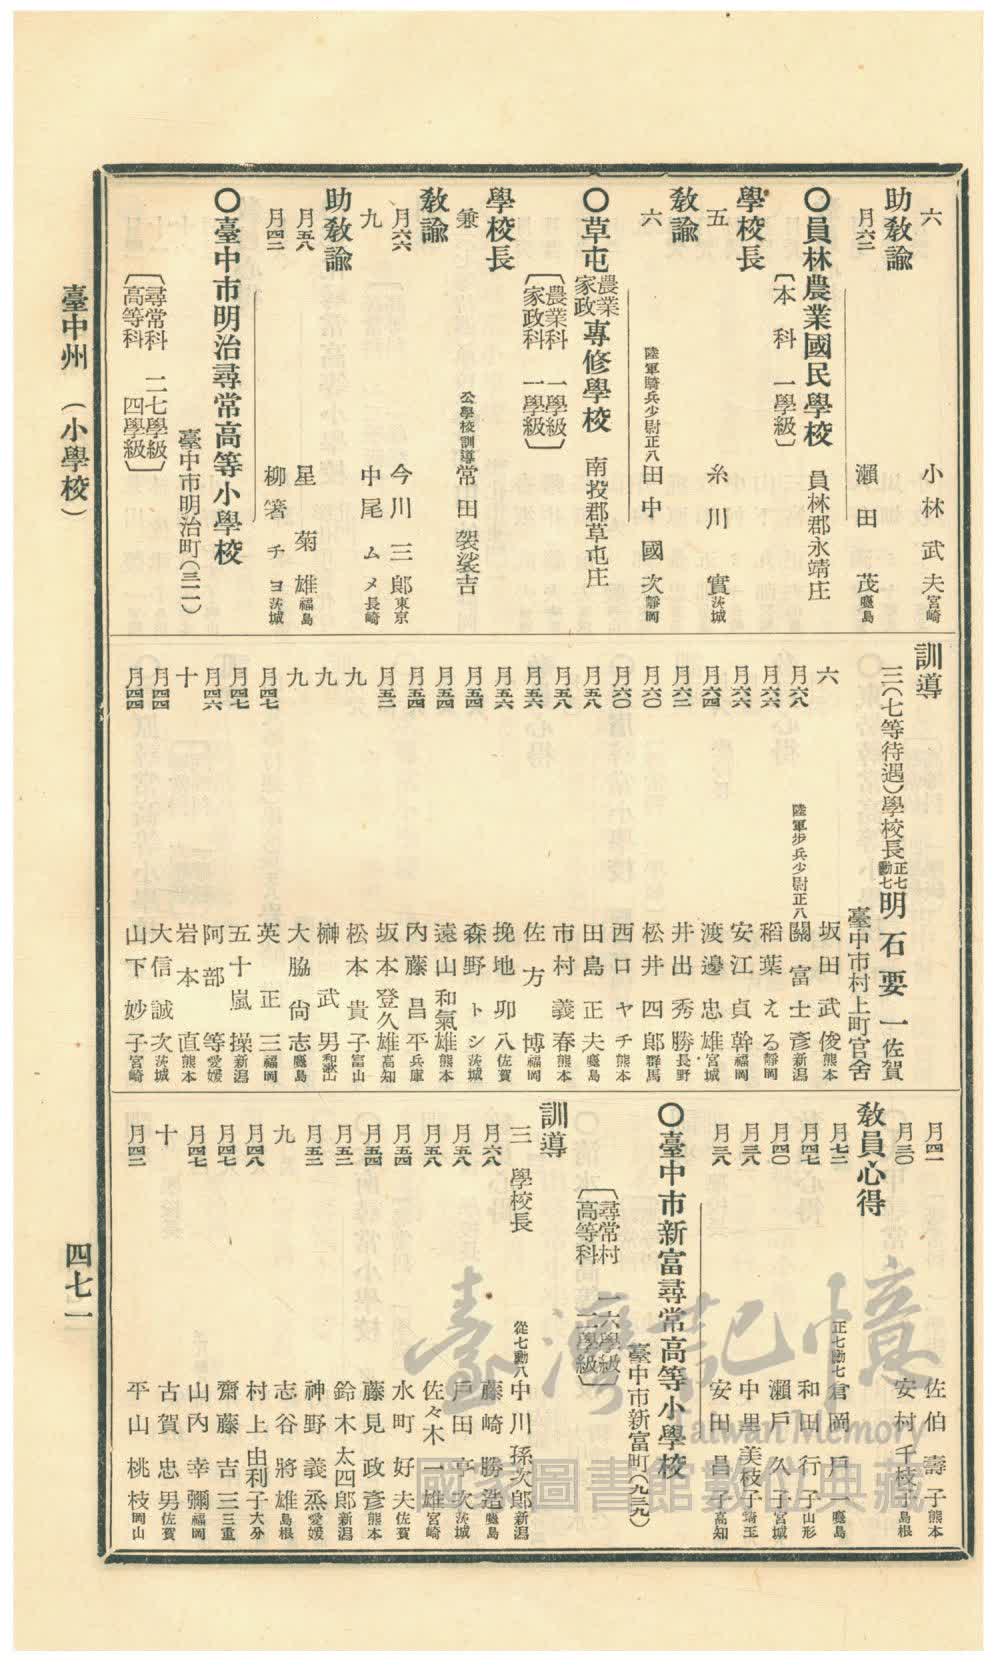 六 小林武夫 宮崎
助教諭
月六二 瀨田茂 鹿島
〇員林農業國民學校 員林郡永靖庄
〔本科 一學級〕
學校長
五 糸川實 茨城
教諭
六 陸軍騎兵少尉正八 田中國次 靜岡
〇草屯農業家政專修學校 南投郡草屯庄
〔農業科 一學級
家政科 一學級〕
學校長
兼 公學校訓導 常田袈裟吉
教諭
月六六 今川三郎 東京
九 中尾ムメ 長崎
助教諭
月五八 星菊雄 福島
月四二 柳箸チヨ 茨城
〇臺中市明治尋常高等小學校
臺中市明治町(三一一)
〔尋常科 二七學級
高等科 四學級〕
訓導
三(七等待遇)學校長 正七勳七 明石要一 佐賀
臺中市村上町官舍
六 坂田武俊 熊本
月六八 陸軍步兵少尉正八 關富士彥 新潟
月六六 稻葉える 靜岡
月六六 安江貞幹 福岡
月六四 渡邊忠雄 宮城
月六二 井出秀勝 長野
月六〇 松井四郎 群馬
月六〇 西口ヤチ 熊本
月五八 田島正夫 鹿島
月五八 市村義春 熊本
月五六 佐方博 福岡
月五六 挽地卯八 佐賀
月五四 森野トシ 茨城
月五四 遠山和氣雄 熊本
月五四 內藤昌平 兵庫
月五二 坂本登久雄 高知
九 松本貴子 富山
九 榊武男 和歌山
九 大脇尙志 鹿島
月四七 英正三 福岡
月四七 五十嵐操 新潟
月四六 阿部等 愛媛
十 岩本直 熊本
月四四 大信誠次 茨城
月四四 山下妙子 宮崎
月四一 佐伯壽子 熊本
月三〇 安村千枝子 島根
教員心得
月七二 正七勳七 倉岡戶一 鹿島
月四七 和田行子 山形
月四〇 瀨戶久子 宮城
月三八 中里美枝子 埼玉
月三八 安田昌子 高知
〇臺中市新富尋常高等小學校
臺中市新富町(九三九)
〔尋常村 一六學級
高等科 二學級〕
訓導
三 學校長 從七勳八 中川孫次郎 新潟
月六八 藤崎勝浩 鹿島
月五八 戶田亨次 茨城
月五八 佐々木一雄 宮崎
月五四 水町好夫 佐賀
月五四 藤見政彥 熊本
月五二 鈴木太四郎 新潟
月五二 神野義烝 愛媛
九 志谷將雄 島根
月四八 村上由利子 大分
月四七 齋藤吉三 三重
月四七 山內幸彌 福岡
十 古賀忠男 佐賀
月四二 平山桃枝 岡山
臺中州 (小學校)
四七一
臺灣記憶
Taiwan Memory
國家圖書館數位典藏